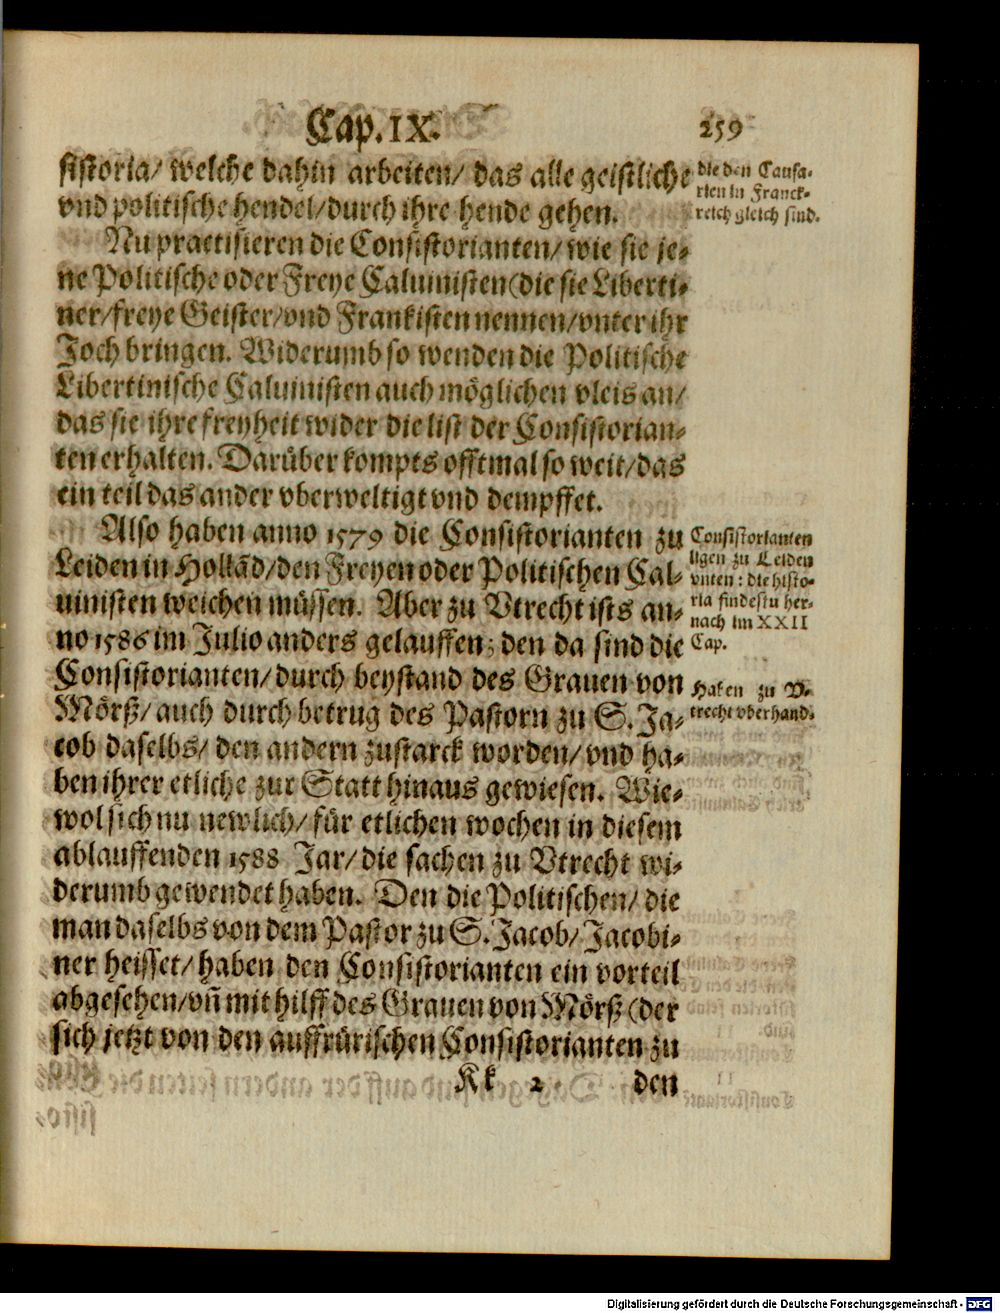 Cap. IX. 259
sistoria/ welche dahin arbeiten/ das alle geistliche
vnd politische hendel/durch ihre hende gehen.
die den Causa-
rien in Franck-
reich gleich sind.
Nu practisieren die Consistorianten/ wie sie je-
ne Politische oder Freye Caluinisten (die sie Liberti-
ner/freye Geister/vnd Frankisten nennen/vnter ihr
Joch bringen. Widerumb so wenden die Politische
Libertinische Caluinisten auch möglichen vleis an/
das sie ihre freyheit wider die list der Consistorian-
ten erhalten. Darüber kompts offtmal so weit/das
ein teil das ander vberweltigt vnd dempffet.
Also haben anno 1579 die Consistorianten zu
Leiden in Hollād/den Freyen oder Politischen Cal-
uinisten weichen müssen. Aber zu Vtrecht ists an-
no 1586 im Julio anders gelauffen; den da sind die
Consistorianten/durch beystand des Grauen von
Mörß/auch durch betrug des Pastorn zu S. Ja-
cob daselbs/ den andern zustarck worden/ vnd ha-
ben ihrer etliche zur Statt hinaus gewiesen. Wie-
wol sich nu newlich/ für etlichen wochen in diesem
ablauffenden 1588 Jar/die sachen zu Vtrecht wi-
derumb gewendet haben. Den die Politischen/ die
man daselbs von dem Pastor zu S. Jacob/ Jacobi-
ner heisset/ haben den Consistorianten ein vorteil
abgesehen/vñ mit hilff des Grauen von Mörß (der
sich jetzt von den auffrürischen Consistorianten zu
Consistorianten
ligen zu Leiden
vnten: die histo-
ria findestu her-
nach im XXII
Cap.
Haben zu V-
trecht vberhand.
Kk 2 den
Digitalisierung gefördert durch die Deutsche Forschungsgemeinschaft - DFG